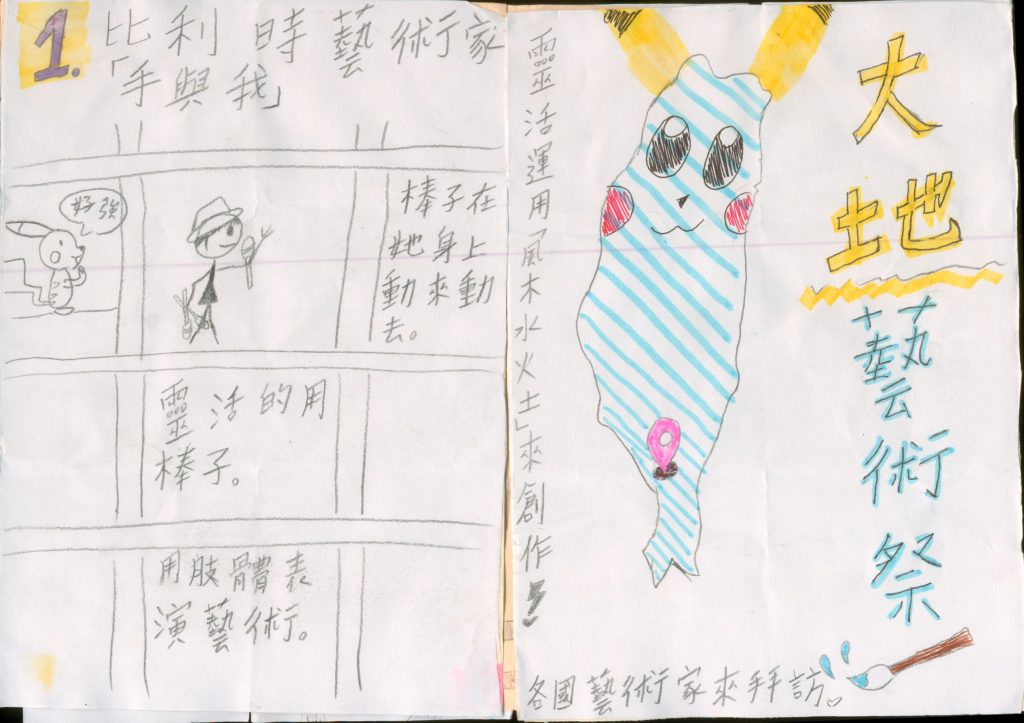 1.
比利時藝術家
「手與我」
好強
棒子在
她身上
動來動
去。
靈活的用
棒子。
用肢體表
演藝術。
靈活運用「風木水火土」來創作！
大地
藝術祭
各國藝術家來拜訪。